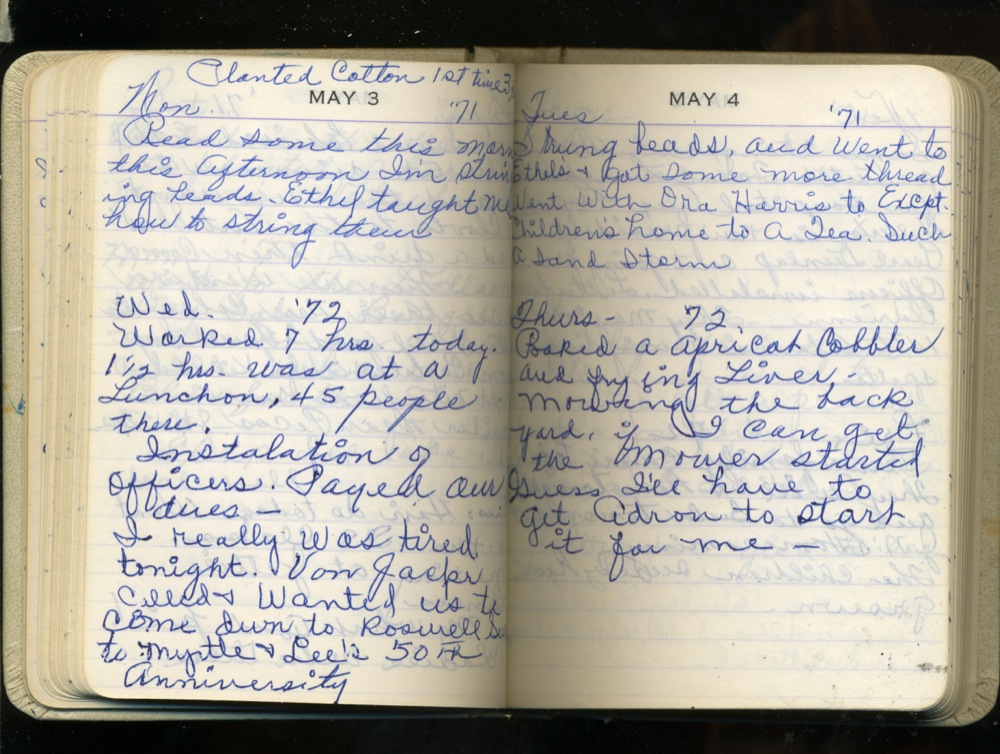 Planted Cotton 1st time 3,
MAY 3
Mon. '71
Read some this morn
this afternoon I'm strin
ing beads. Ethel taught me
how to string them
Wed. '72
Worked 7 hrs. today.
1½ hrs. was at a
Lunchon, 45 people
there.
Instalation of
Officers. Payed our
dues —
I really was tired
tonight. Von
Called & Wanted us to
Come down to Roswell Su
to Myrtle & Lee's 50th
Anniversity
MAY 4
Tues '71
Strung beads, and went to
Ethel's & got some more thread
Went with Ora Harris to Excpt.
Childrens home to a Tea. Such
a sand storm
Thurs - 72
Baked a apricot Cobbler
and frying Liver -
mowing the back
yard, if I can get
the mower started
Guess I'll have to
get Adron to start
it for me —